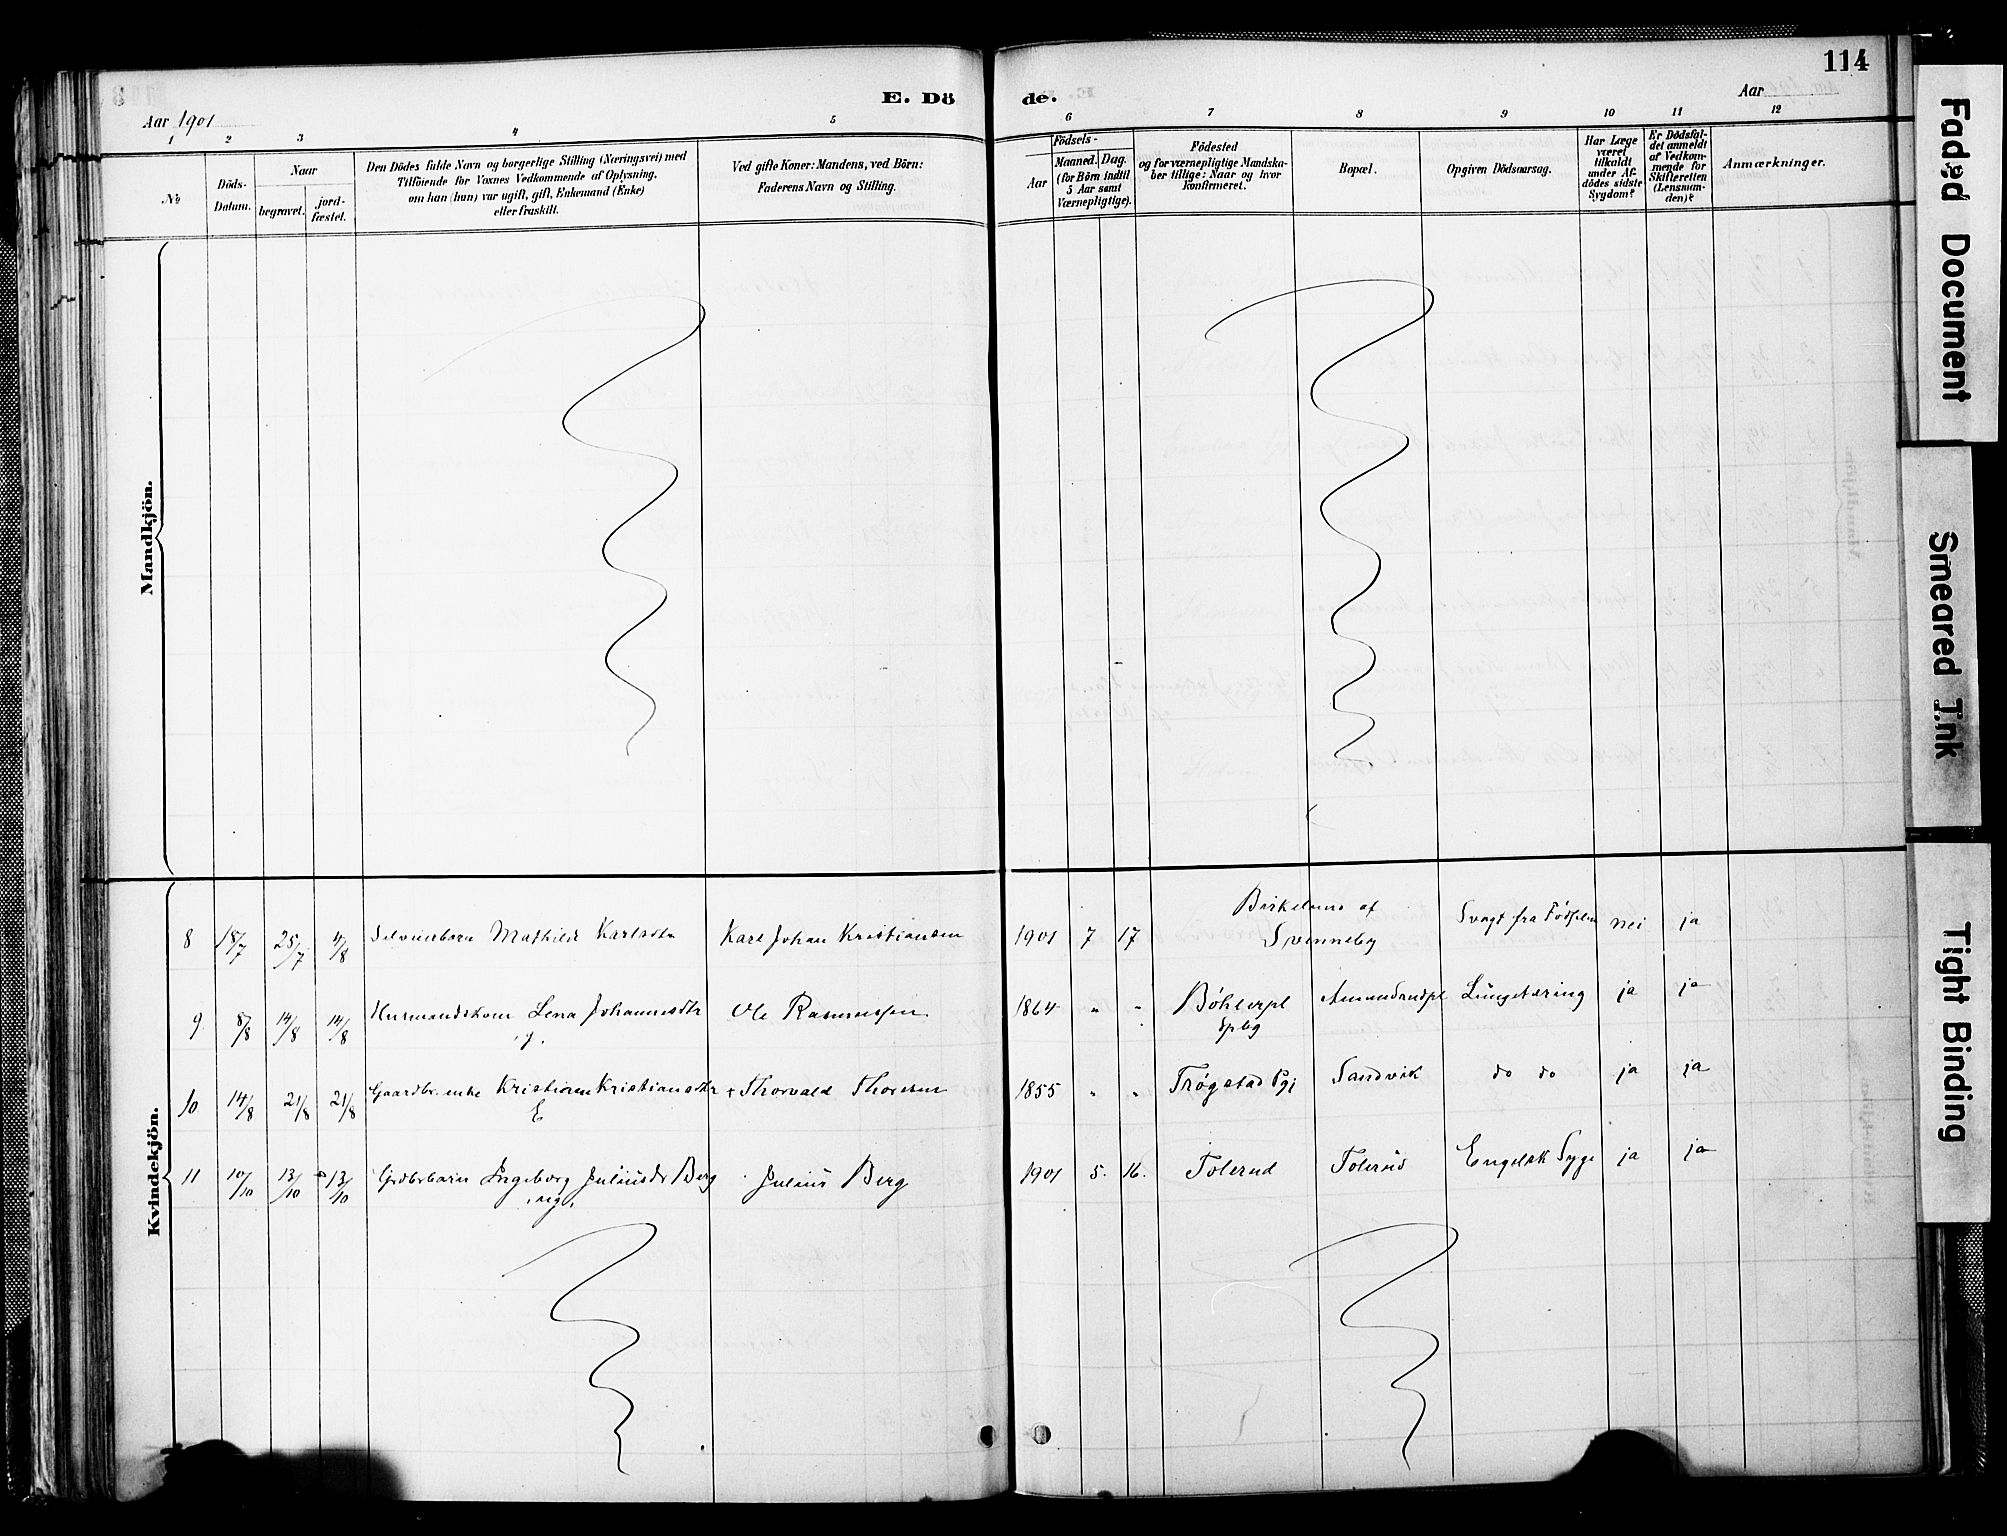 114
E. Dö
de.
Aar 1901
Aar
1 2 3 4 5 6 7 8 9 10 11 12
№
Döds-Datum.
Naar
begravet.
jord-fæstet.
Den Dödes fulde Navn og borgerlige Stilling (Næringsvei) med
Tilföiende for Voxnes Vedkommende af Oplysning,
om han (hun) var ugift, gift, Enkemand (Enke)
eller fraskilt.
Ved gifte Koner: Mandens, ved Börn:
Faderens Navn og Stilling.
Födsels-
Aar
Maaned. Dag.
(for Börn indtil
5 Aar samt
Værnepligtige).
Födested
og for værnepligtige Mandska-
ber tillige: Naar og hvor
konfirmeret.
Bopæl.
Opgiven Dödsaarsag.
Har Læge
været
tilkaldt
under Af-
dödes sidste
Sygdom?
Er Dödsfal-
det anmeldt
af Vedkom-
mende for
Skifteretten
(Lensman-
den)?
Anmærkninger.
Mandkjön.
Kvindekjön.
8 18/7 25/7 4/8 Mathilde Karlsdtr Karl Johan Kristiansen 1901 7 17 af Svagt fra Fødselen nei ja
Svenneby
9 8/8 14/8 14/8 Husmandskone Lena Johannesdtr Ole Rasmussen 1864 " " Bøhlerpl Amundrudpl Lungetæring ja ja
g. Spbg
10 14/8 21/8 21/8 Gaardbr. enke Kristiane Kristiansdtr + Thorvald Thoresen 1855 " " Trøgstad Pgj Sandvik do do ja ja
E
11 10/10 13/10 13/10 Grdbrbarn Ingeborg Juliusdr Berg Julius Berg 1901 5. 16. Tolerud Tolerud Engelsk Syge ja ja
ug.
Faded Document
Smeared Ink
Tight Binding